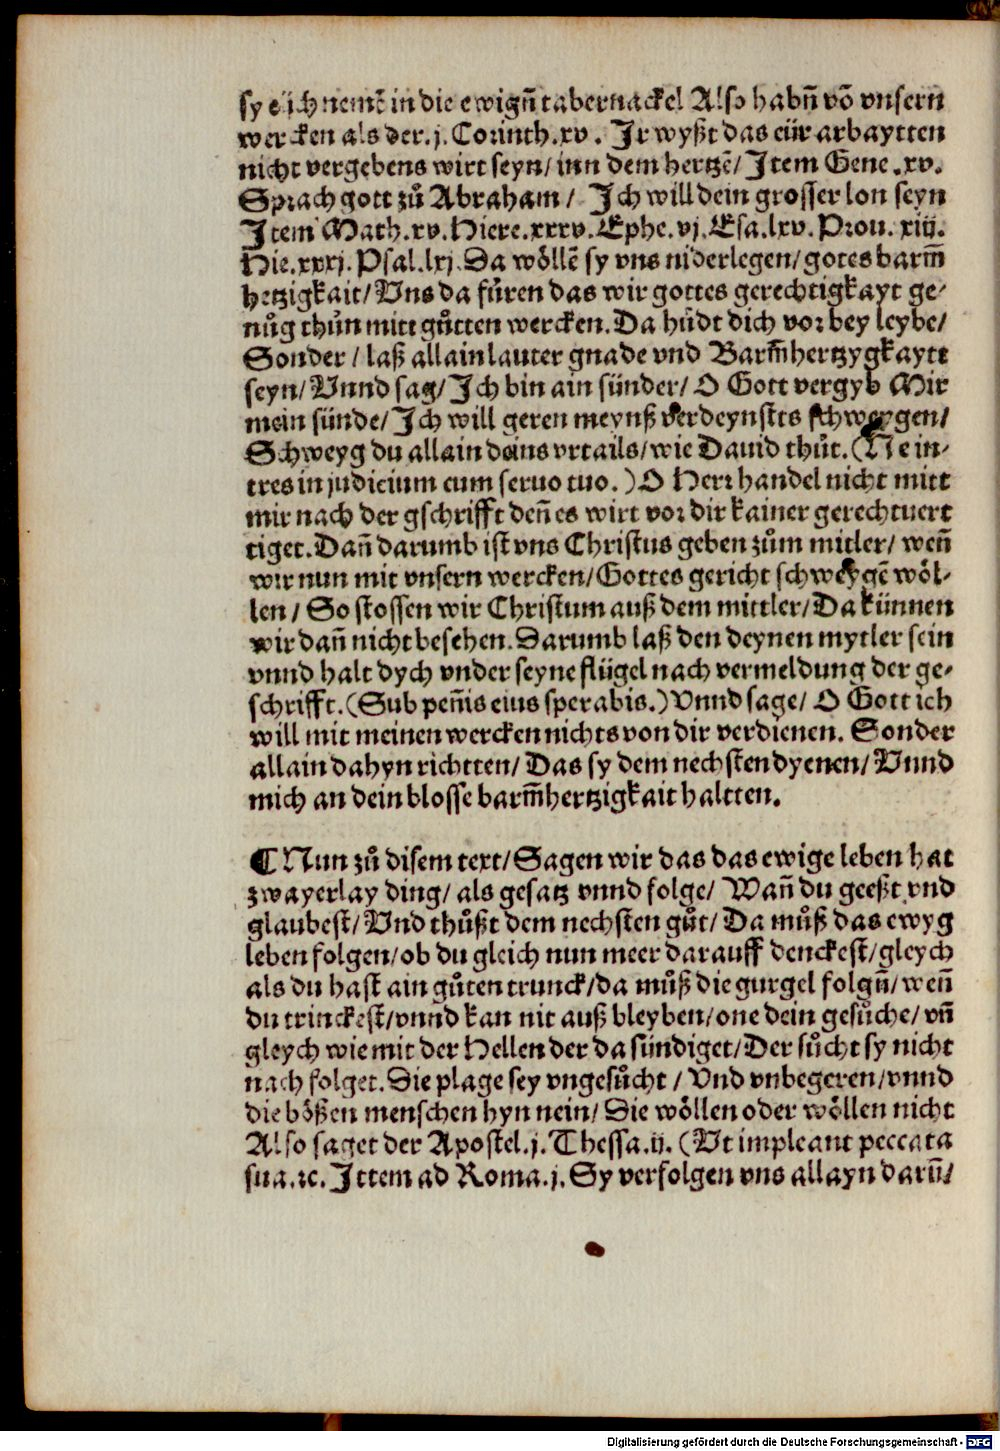 sy eüch nemē in die ewigñ tabernackel Also habñ võ vnsern
wercken als der.j. Corinth.xv. Ir wyßt das eür arbaytten
nicht vergebens wirt seyn/ inn dem hertzē/ Item Gene.xv.
Sprach gott zů Abraham/ Ich will dein grosser lon seyn
Item Math.xv. Hiere.xxxv. Ephe.vj. Esa.lxv. Prou. xiij.
Hie.xxxj. Psal.lxj. Da wöllē sy vns niderlegen/ gotes barm̄
hetzigkait/ Vns da füren das wir gottes gerechtigkayt ge-
nůg thůn mitt gůtten wercken. Da hůdt dich vor bey leybe/
Sonder/ laß allain lauter gnade vnd Barm̄hertzygkaytt
seyn/ Vnnd sag/ Ich bin ain sünder/ O Gott vergyb Mir
mein sünde/ Ich will geren meynß verdeynstts schweygen/
Schweyg du allain deins vrtails/ wie Dauid thůt. (Ne in-
tres in judicium cum seruo tuo.) O Herr handel nicht mitt
mir nach der gschrifft deñ es wirt vor dir kainer gerechtuert
tiget. Dañ darumb ist vns Christus geben zům mitler/ weñ
wir nun mit vnsern wercken/ Gottes gericht schweygē wöl-
len/ So stossen wir Christum auß dem mittler/ Da künnen
wir dañ nicht besehen. Darumb laß den deynen mytler sein
vnnd halt dych vnder seyne flügel nach vermeldung der ge-
schrifft. (Sub peñis eius sperabis.) Vnnd sage/ O Gott ich
will mit meinen wercken nichts von dir verdienen. Sonder
allain dahyn richtten/ Das sy dem nechsten dyenen/ Vnnd
mich an dein blosse barm̄hertzigkait haltten.
¶ Nun zů disem text/ Sagen wir das das ewige leben hat
zwayerlay ding/ als gesatz vnnd folge/ Wañ du geeßt vnd
glaubest/ Vnd thůßt dem nechsten gůt/ Da můß das ewyg
leben folgen/ ob du gleich nun meer darauff denckest/ gleych
als du hast ain gůten trunck/ da můß die gurgel folgñ/ weñ
du trinckest/ vnnd kan nit auß bleyben/ one dein gesůche/ vñ
gleych wie mit der Hellen der da sündiget/ Der sůcht sy nicht
nach folget. Die plage sey vngesůcht/ Vnd vnbegeren/ vnnd
die bößen menschen hyn nein/ Sie wöllen oder wöllen nicht
Also saget der Apostel.j. Thessa.ij. (Vt impleant peccata
sua.ꝛc. Ittem ad Roma.j. Sy verfolgen vns allayn darū̄/
Digitalisierung gefördert durch die Deutsche Forschungsgemeinschaft - DFG